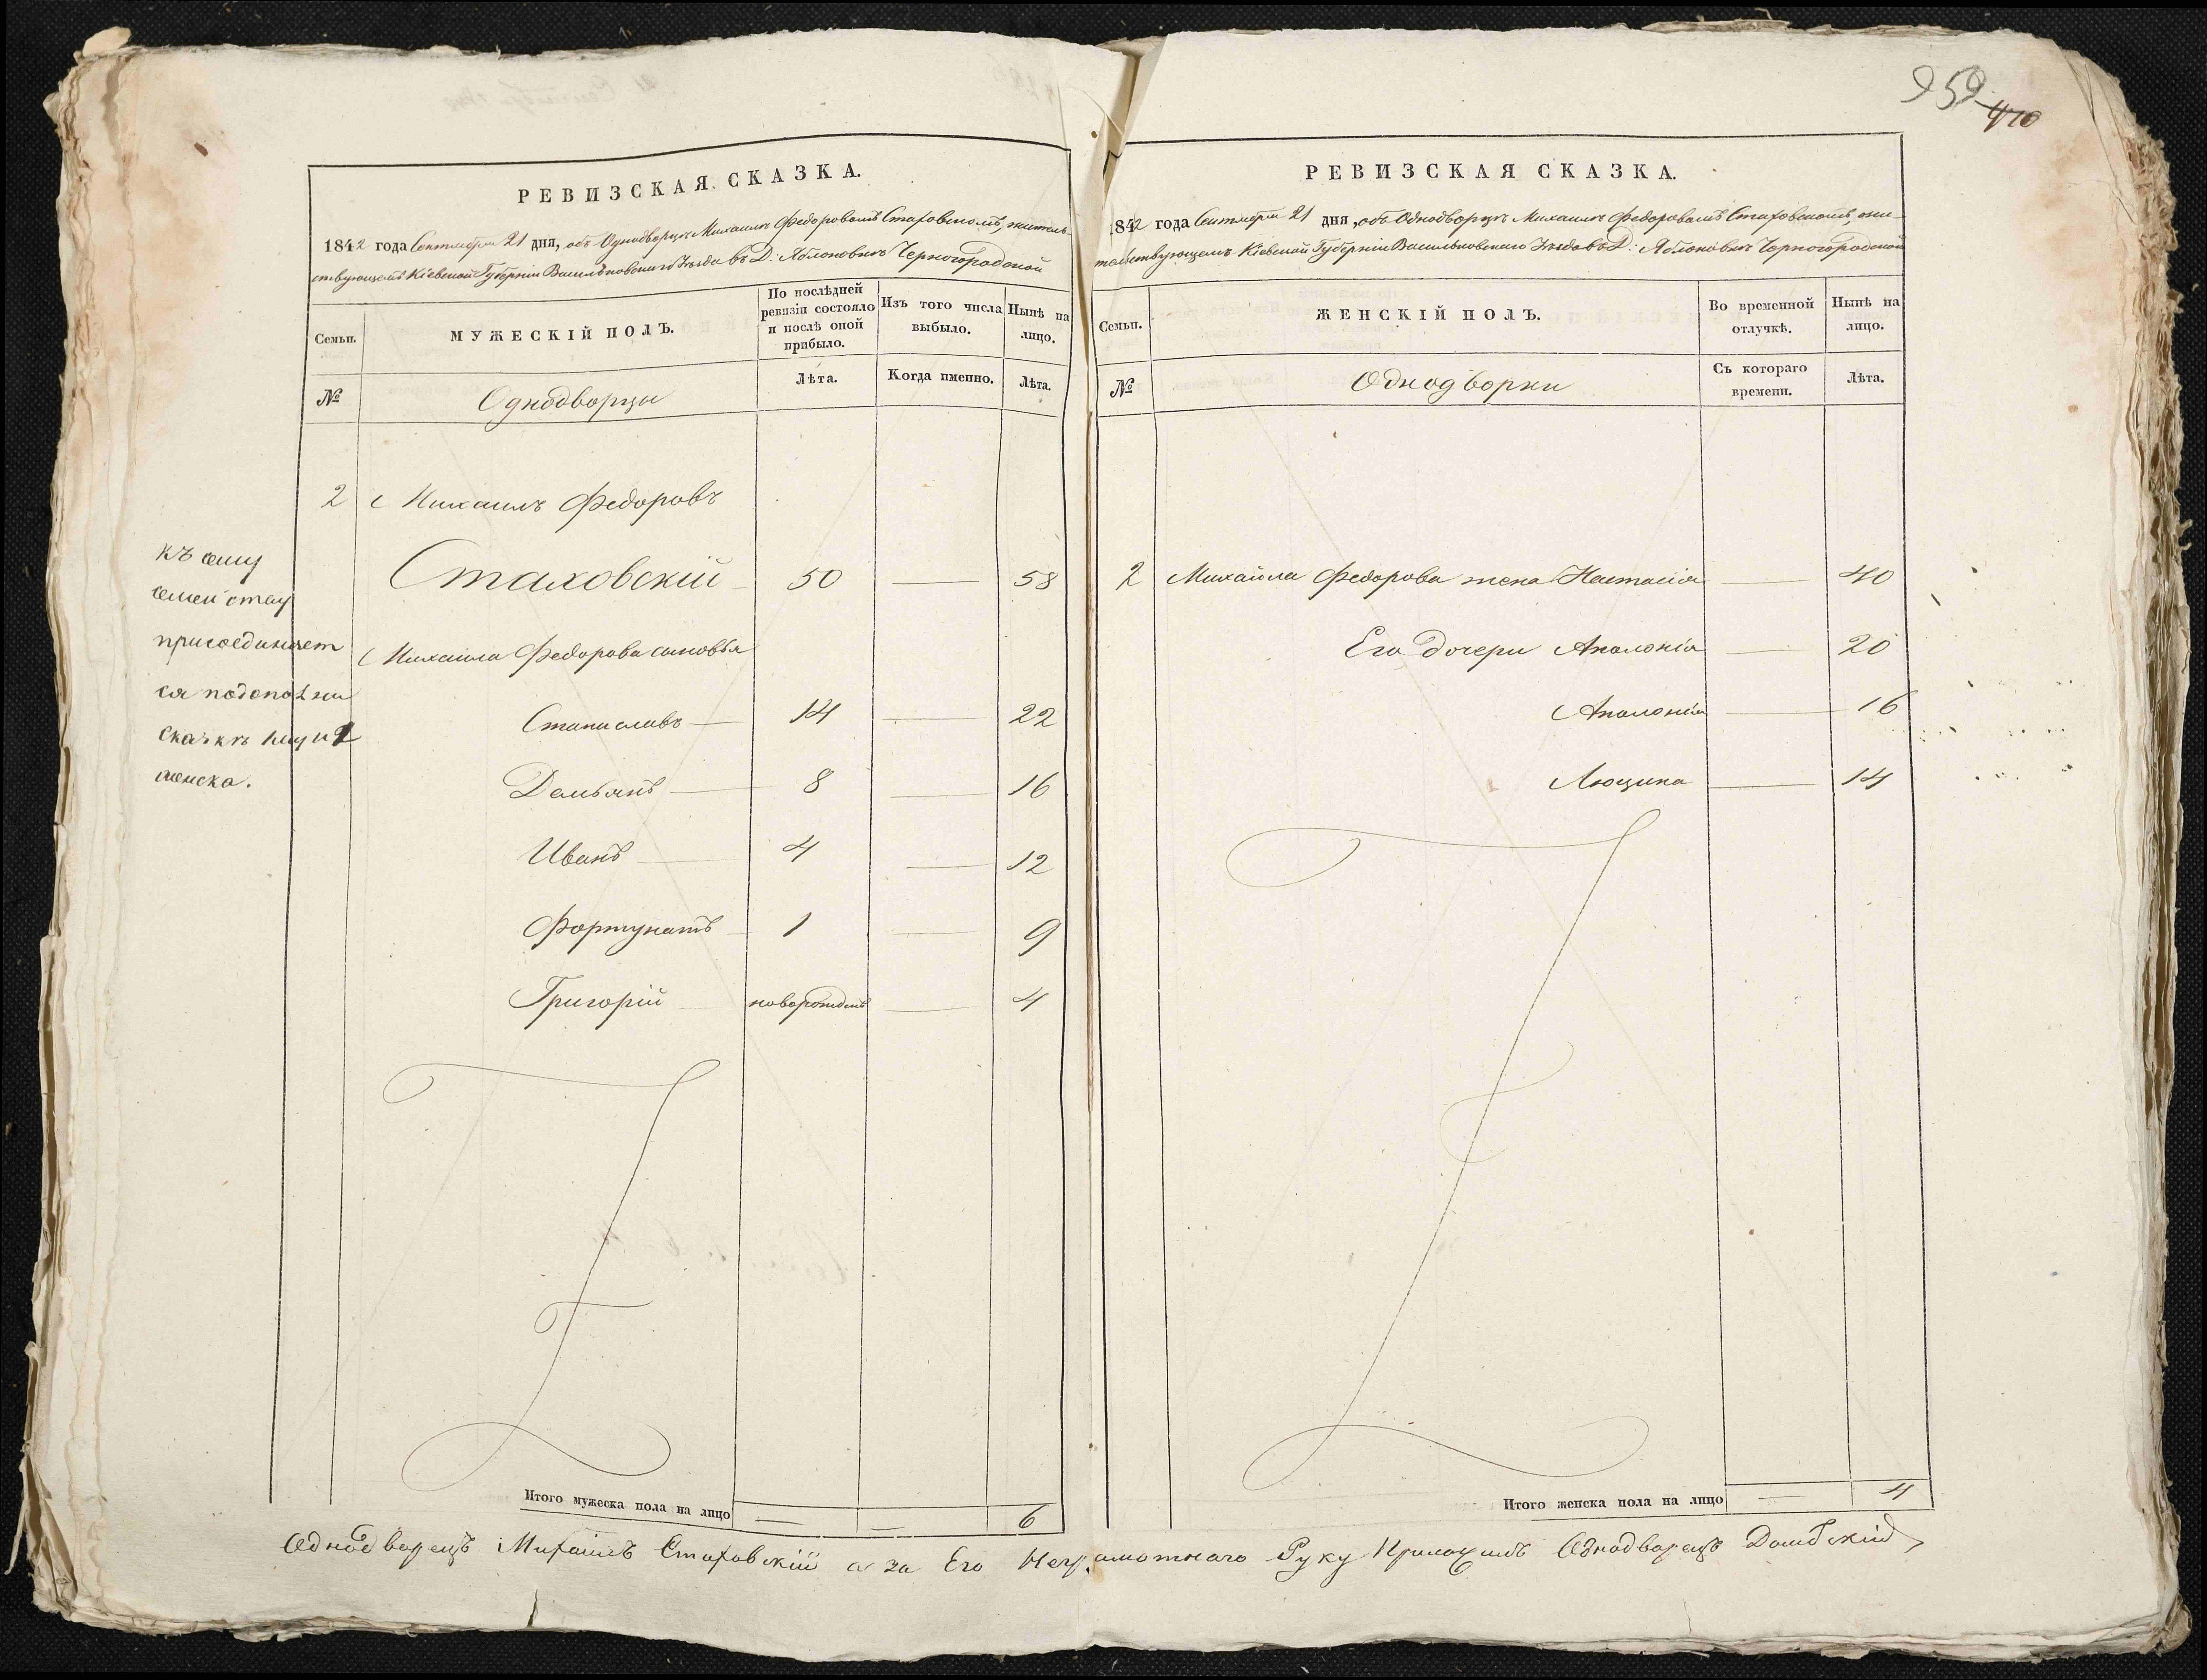 959
470
РЕВИЗСКАЯ СКАЗКА.
1842 года Сентября 21 дня, объ Однодворцѣ Михаилѣ Федоровомъ Стаховскомъ, житель-
ствующемъ Кіевской Губерніи Васильковскаго Уѣзда въ Д: Яблоновкѣ Черногородской
Семьи.
МУЖЕСКІЙ ПОЛЪ.
По послѣдней ревизіи состояло и послѣ оной прибыло.
Изъ того числа выбыло.
Нынѣ на лицо.
№
Однодворцы
Лѣта.
Когда именно.
Лѣта.
2 Михаилъ Федоровъ
Стаховскій 50 — 58
Михаила Федорова сыновья
Станиславъ — 14 — 22
Демьянъ — 8 — 16
Иванъ — 4 — 12
Фортунатъ — 1 — 9
Григорій — новорожденъ — 4
къ сему
семейству
присоединяет
ся
сказкѣ
женска.
Итого мужеска пола на лицо — — 6
РЕВИЗСКАЯ СКАЗКА.
1842 года Сентября 21 дня, объ Однодворцѣ Михаилѣ Федоровомъ Стаховскомъ, жи-
тельствующемъ Кіевской Губерніи Васильковскаго Уѣзда въ Д: Яблоновкѣ Черногородской
Семьи.
ЖЕНСКІЙ ПОЛЪ.
Во временной отлучкѣ.
Нынѣ на лицо.
№
Однодворки
Съ котораго времени.
Лѣта.
2 Михайла Федорова жена Настасія — 40
Его дочери Аполонія — 20
Аполонія — 16
Люцина — 14
Итого женска пола на лицо — 4
Однодворецъ Михаилъ Стаховскій а за Его Неграмотнаго Руку Приложилъ Однодворецъ Домбскій